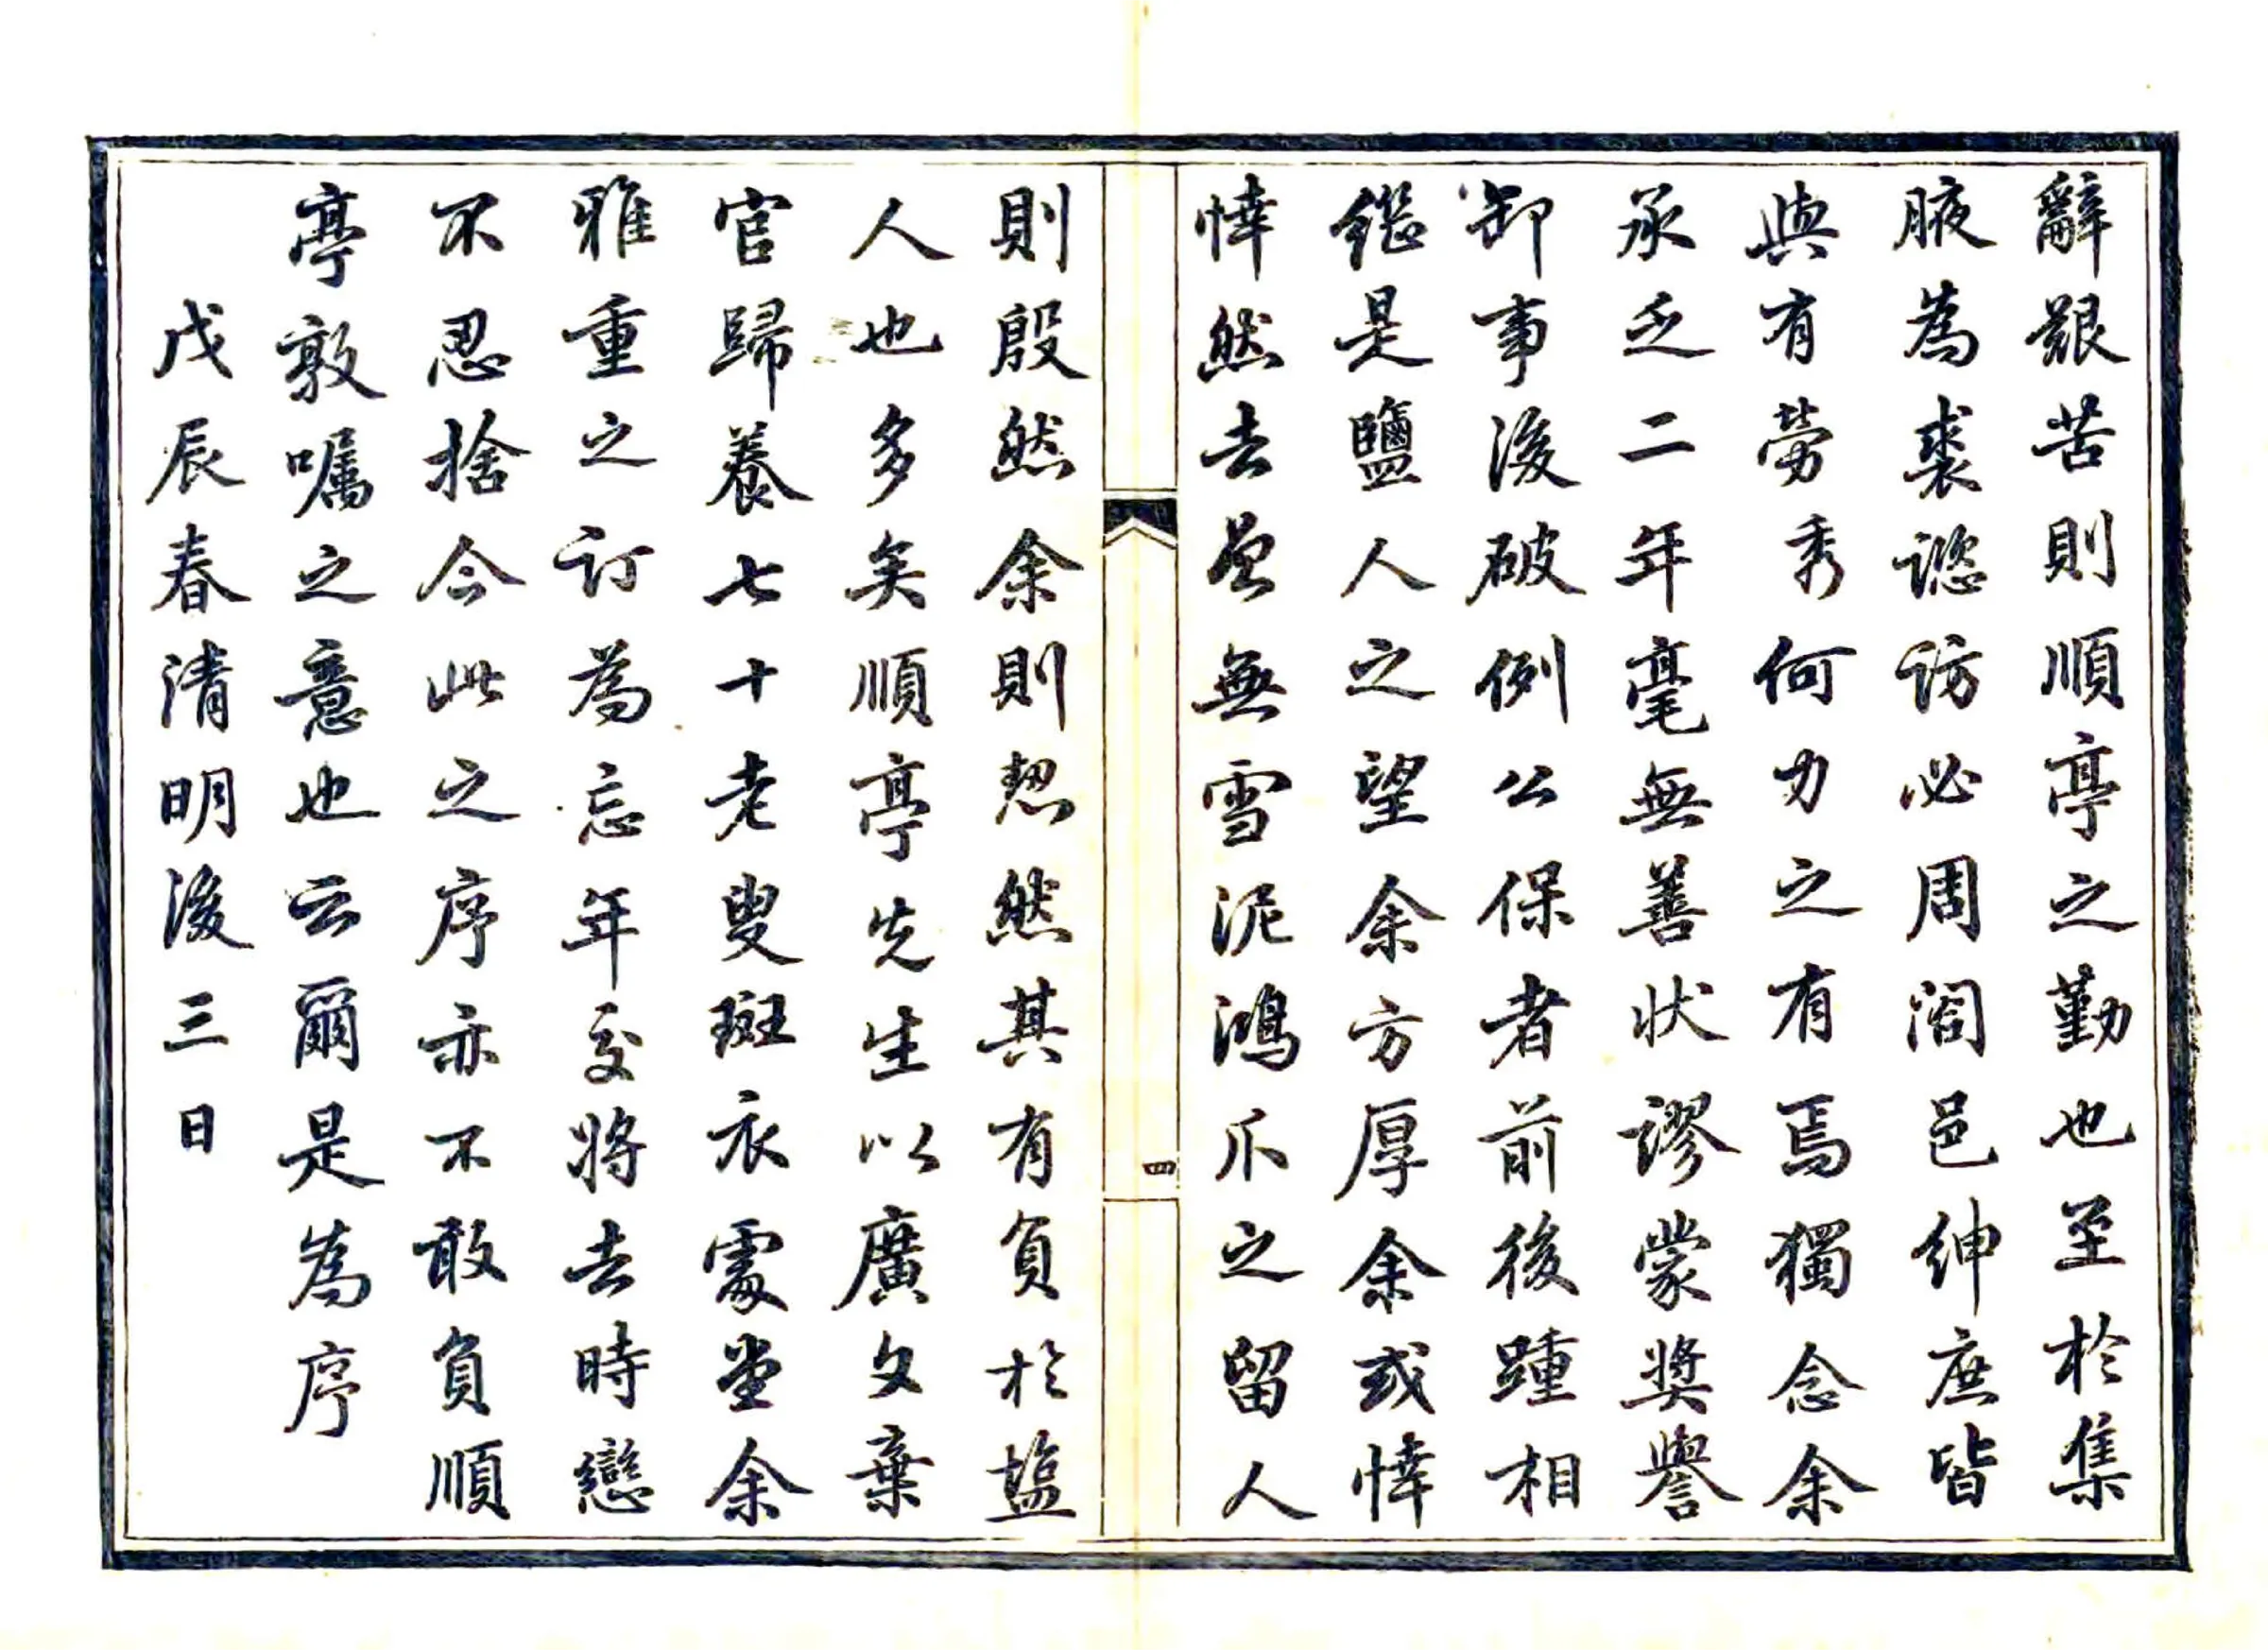 辭艱苦則順亭之勤也至於集
腋為裘諮訪必周闔邑紳庶皆
與有勞秀何力之有焉獨念余
承乏二年毫無善狀謬蒙奬譽
卸事後破例公保者前後踵相
繼是鹽人之望余方厚余或悻
悻然去曾無雪泥鴻爪之留人
則殷然余則恝然其有負於盐
人也多矣順亭先生以廣文棄
官歸養七十老叟斑衣處堂余
雅重之訂為忘年交將去時戀
不忍捨今此之序亦不敢負順
亭敦囑之意也云爾是為序
戊辰春清明後三日
四